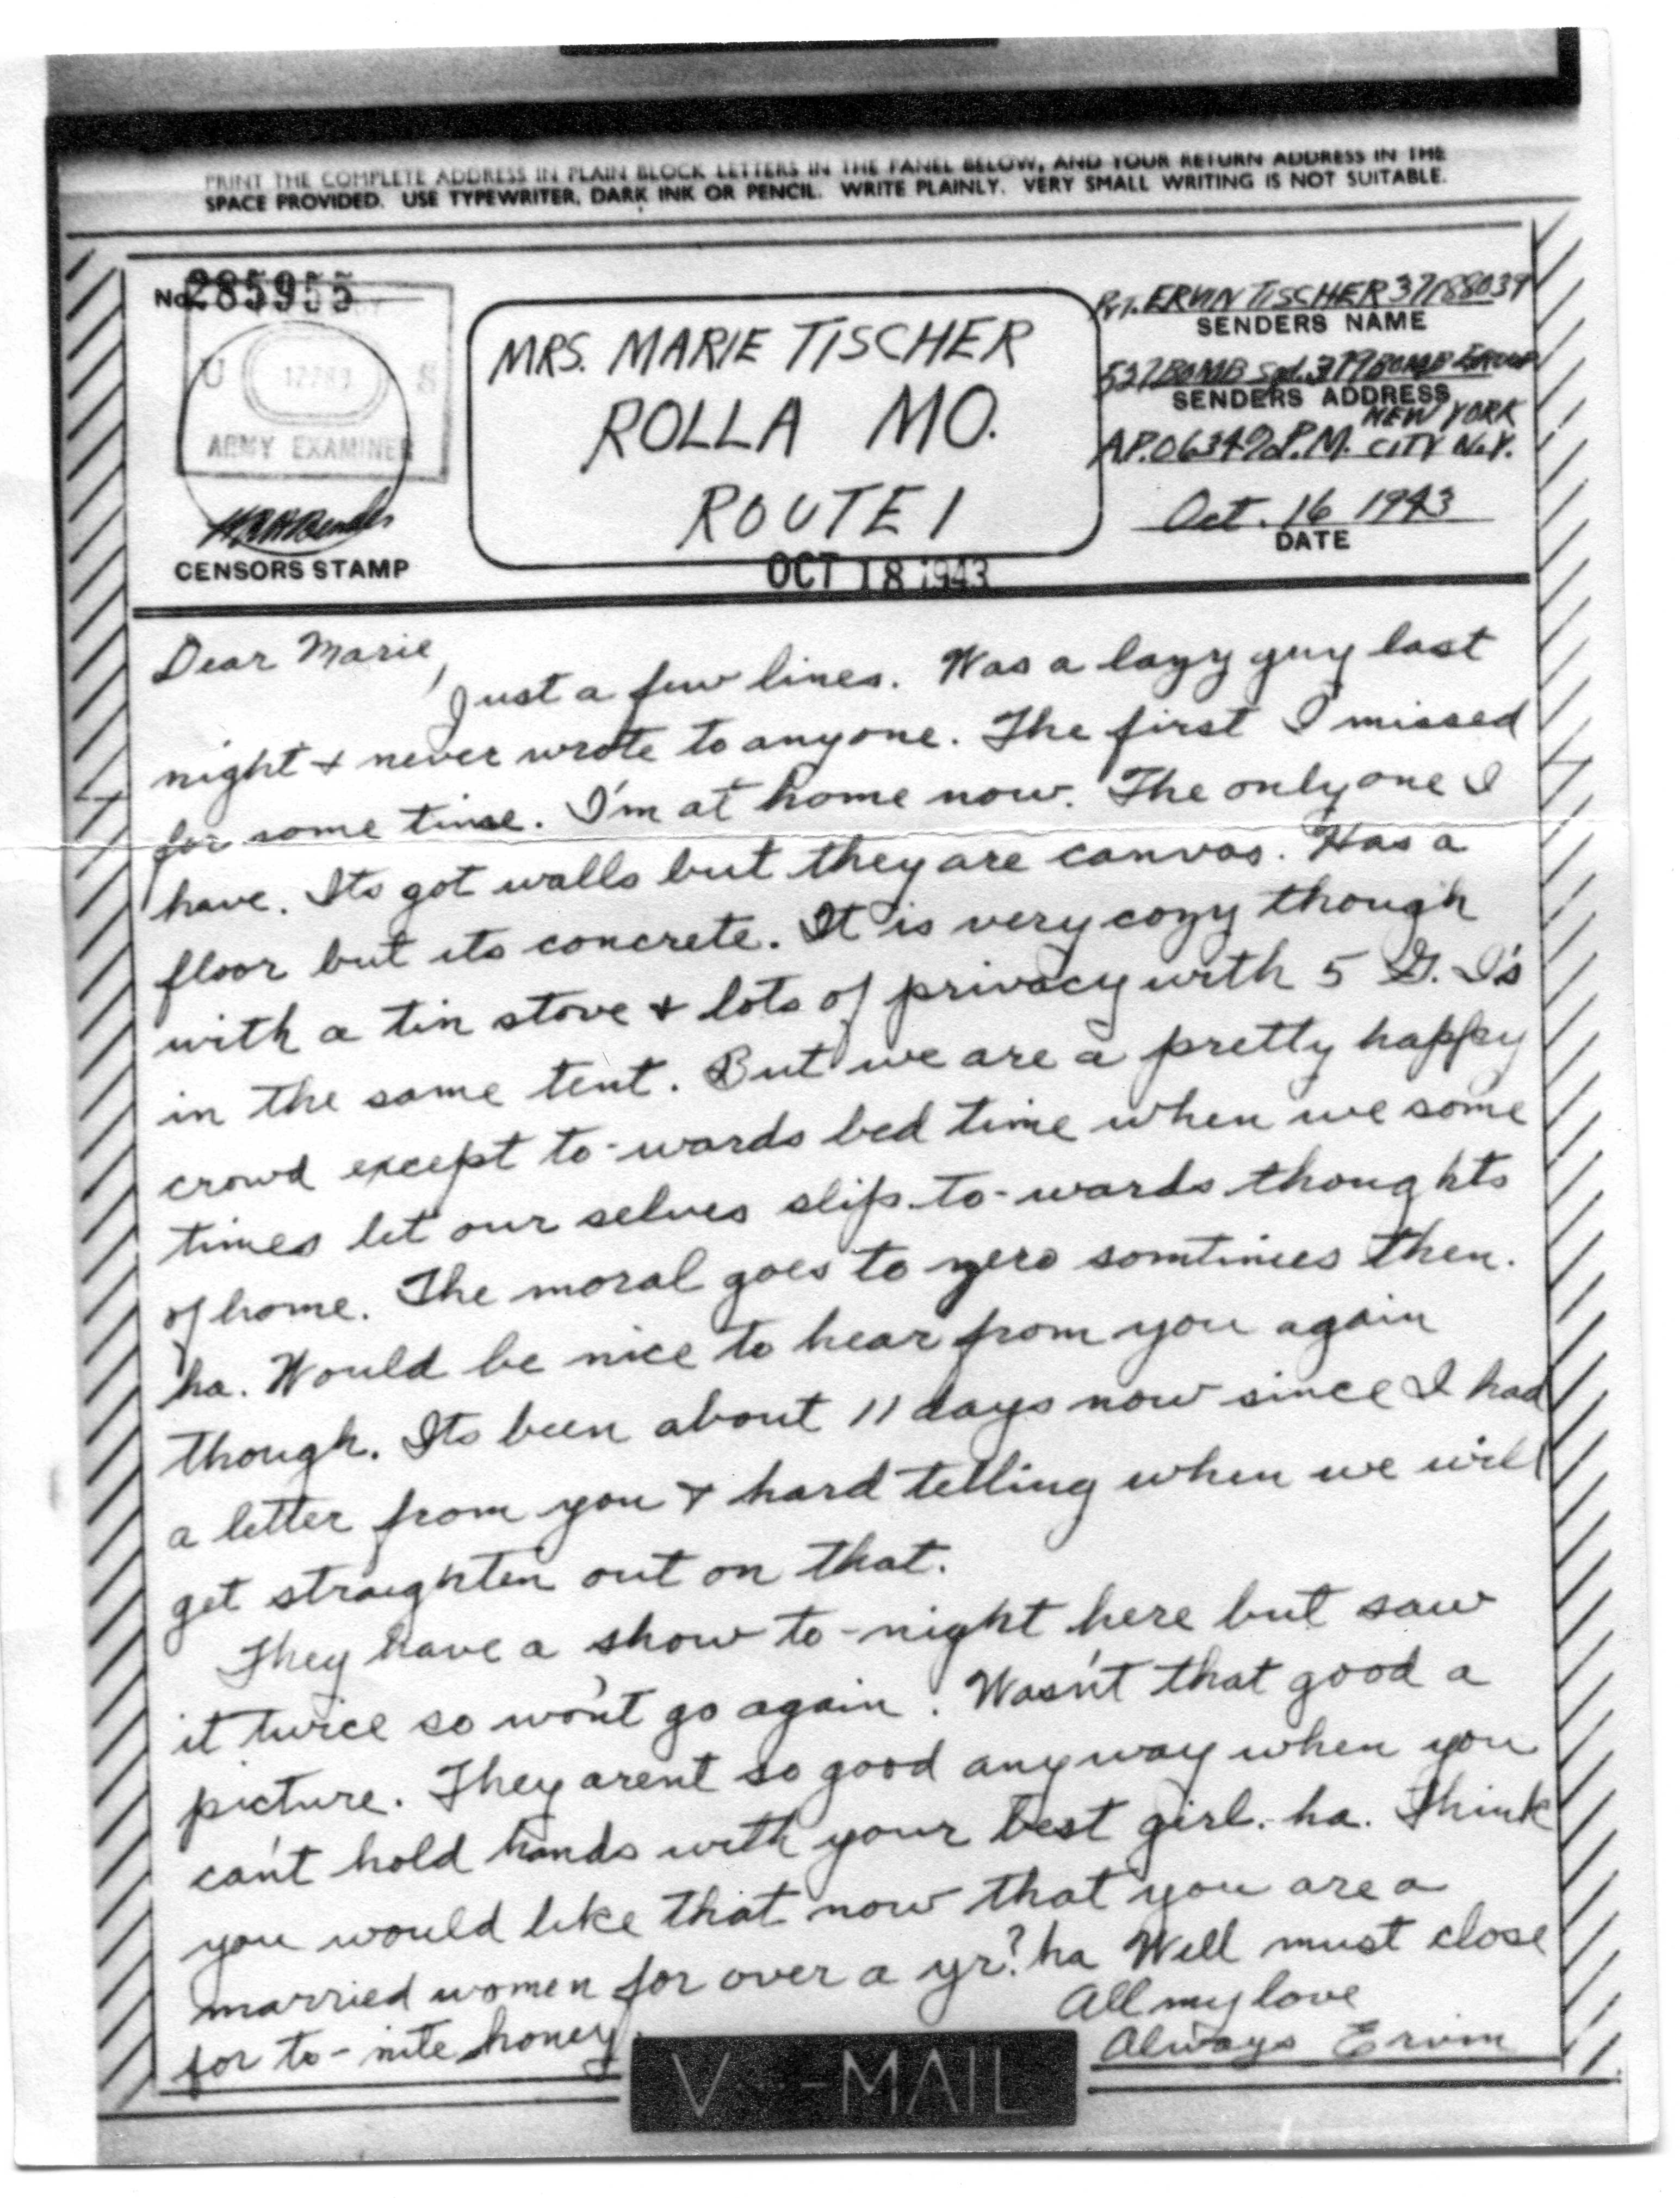 PRINT THE COMPLETE ADDRESS IN PLAIN BLOCK LETTERS IN THE PANEL BELOW, AND YOUR RETURN ADDRESS IN THE
SPACE PROVIDED. USE TYPEWRITER, DARK INK OR PENCIL. WRITE PLAINLY. VERY SMALL WRITING IS NOT SUITABLE.
No. 285955
U S
ARMY EXAMINER
CENSORS STAMP
MRS. MARIE TISCHER
ROLLA MO.
ROUTE 1
OCT 18 1943
Pvt. ERVIN TISCHER 37188039
SENDERS NAME
527 BOMB Sqd. 379 BOMB GROUP
SENDERS ADDRESS
NEW YORK
A.P.O 634 % P.M. CITY N.Y.
Oct. 16 1943
DATE
Dear Marie,
Just a few lines. Was a lazy guy last
night + never wrote to anyone. The first I missed
for some time. I'm at home now. The only one I
have. Its got walls but they are canvas. Has a
floor but its concrete. It is very cozy though
with a tin stove + lots of privacy with 5 G. I's
in the same tent. But we are a pretty happy
crowd except to-wards bed time when we some
times let our selves slip to-wards thoughts
of home. The moral goes to zero somtimes then.
ha. Would be nice to hear from you again
though. Its been about 11 days now since I had
a letter from you + hard telling when we will
get straighten out on that.
They have a show to-night here but saw
it twice so won't go again. Wasn't that good a
picture. They arent so good anyway when you
can't hold hands with your best girl. ha. Think
you would like that now that you are a
married women for over a yr? ha Well must close
for to-nite honey.
All my love
Always Ervin
V···-MAIL